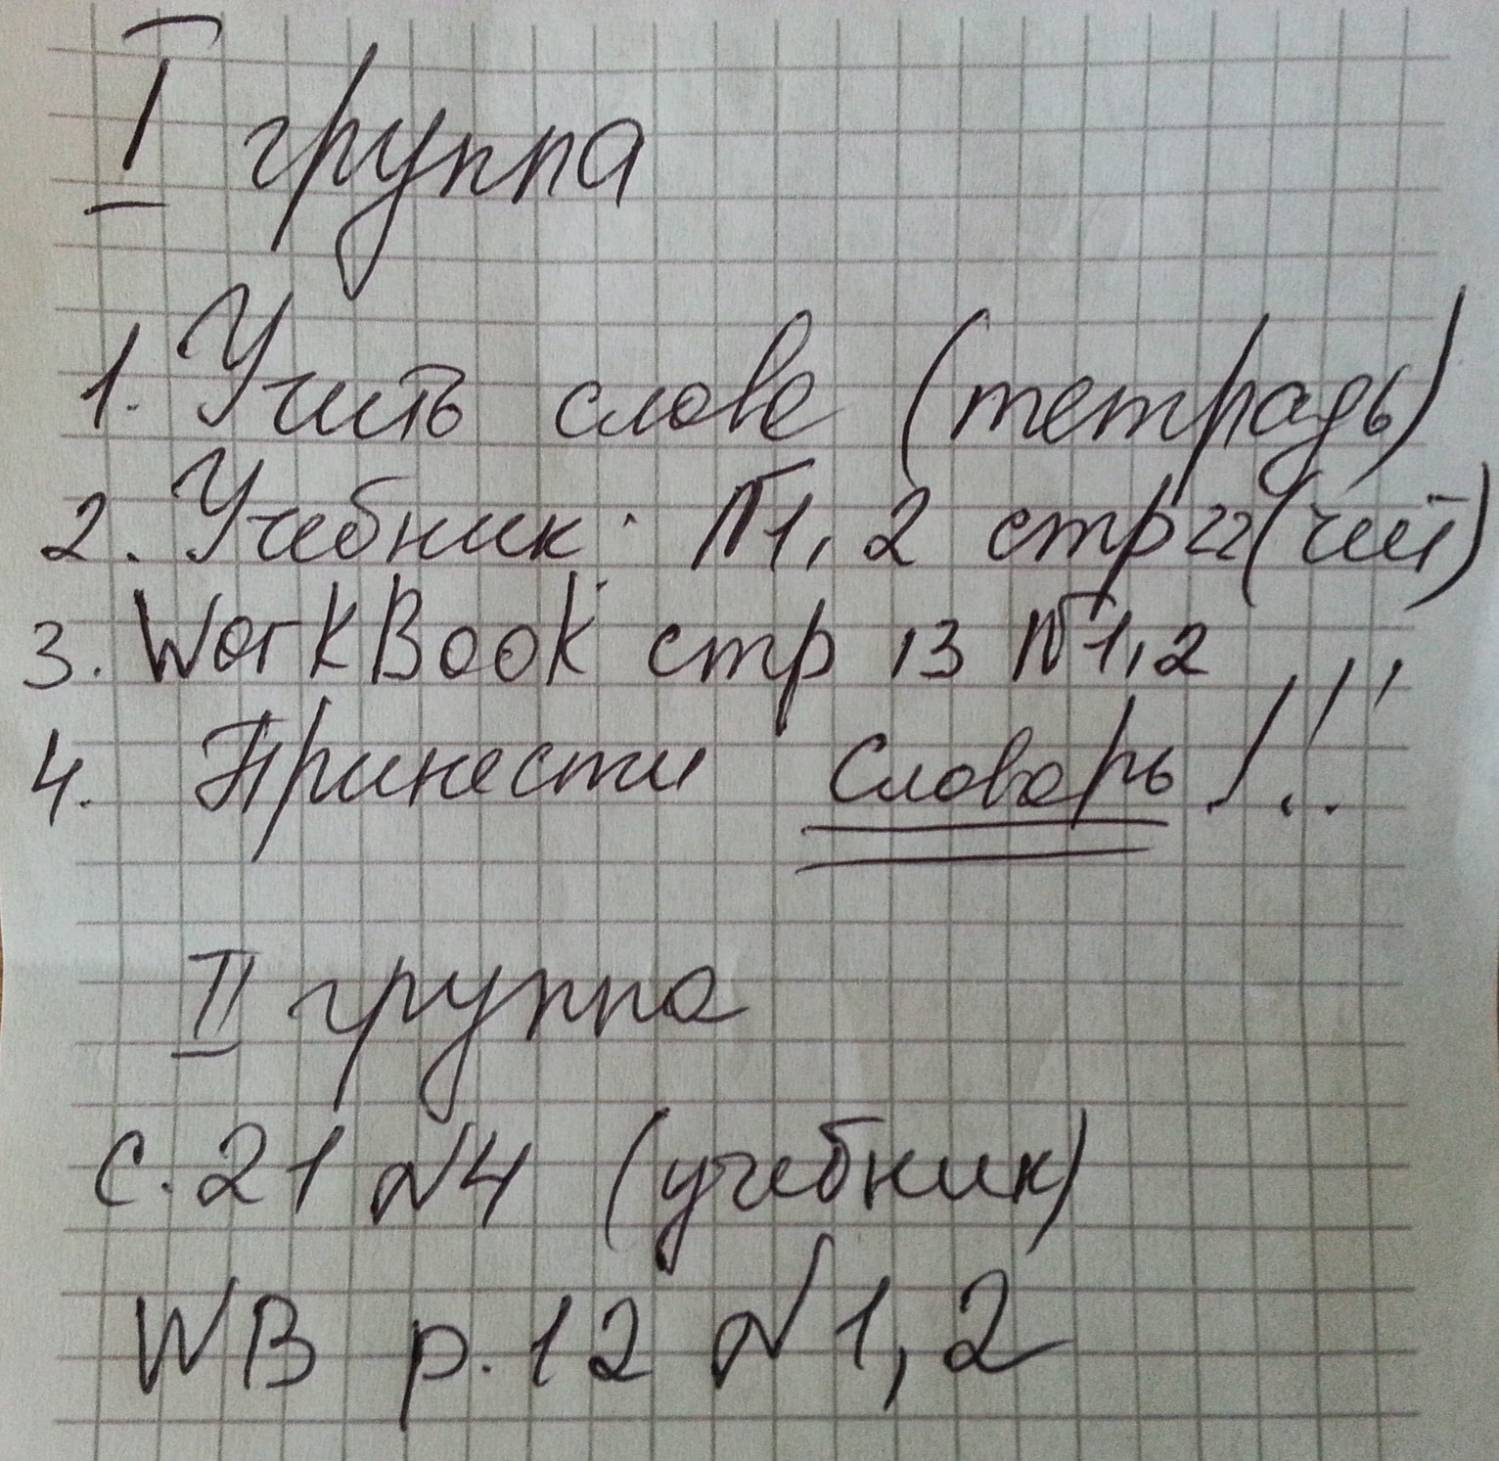 I группа
1. Учить слова (тетрадь)
2. Учебник: №1, 2 стр 22 (чит)
3. WorkBook стр 13 №1,2
4. Принести словарь!!!
II группа
с. 21 №4 (учебник)
WB p. 12 №1, 2